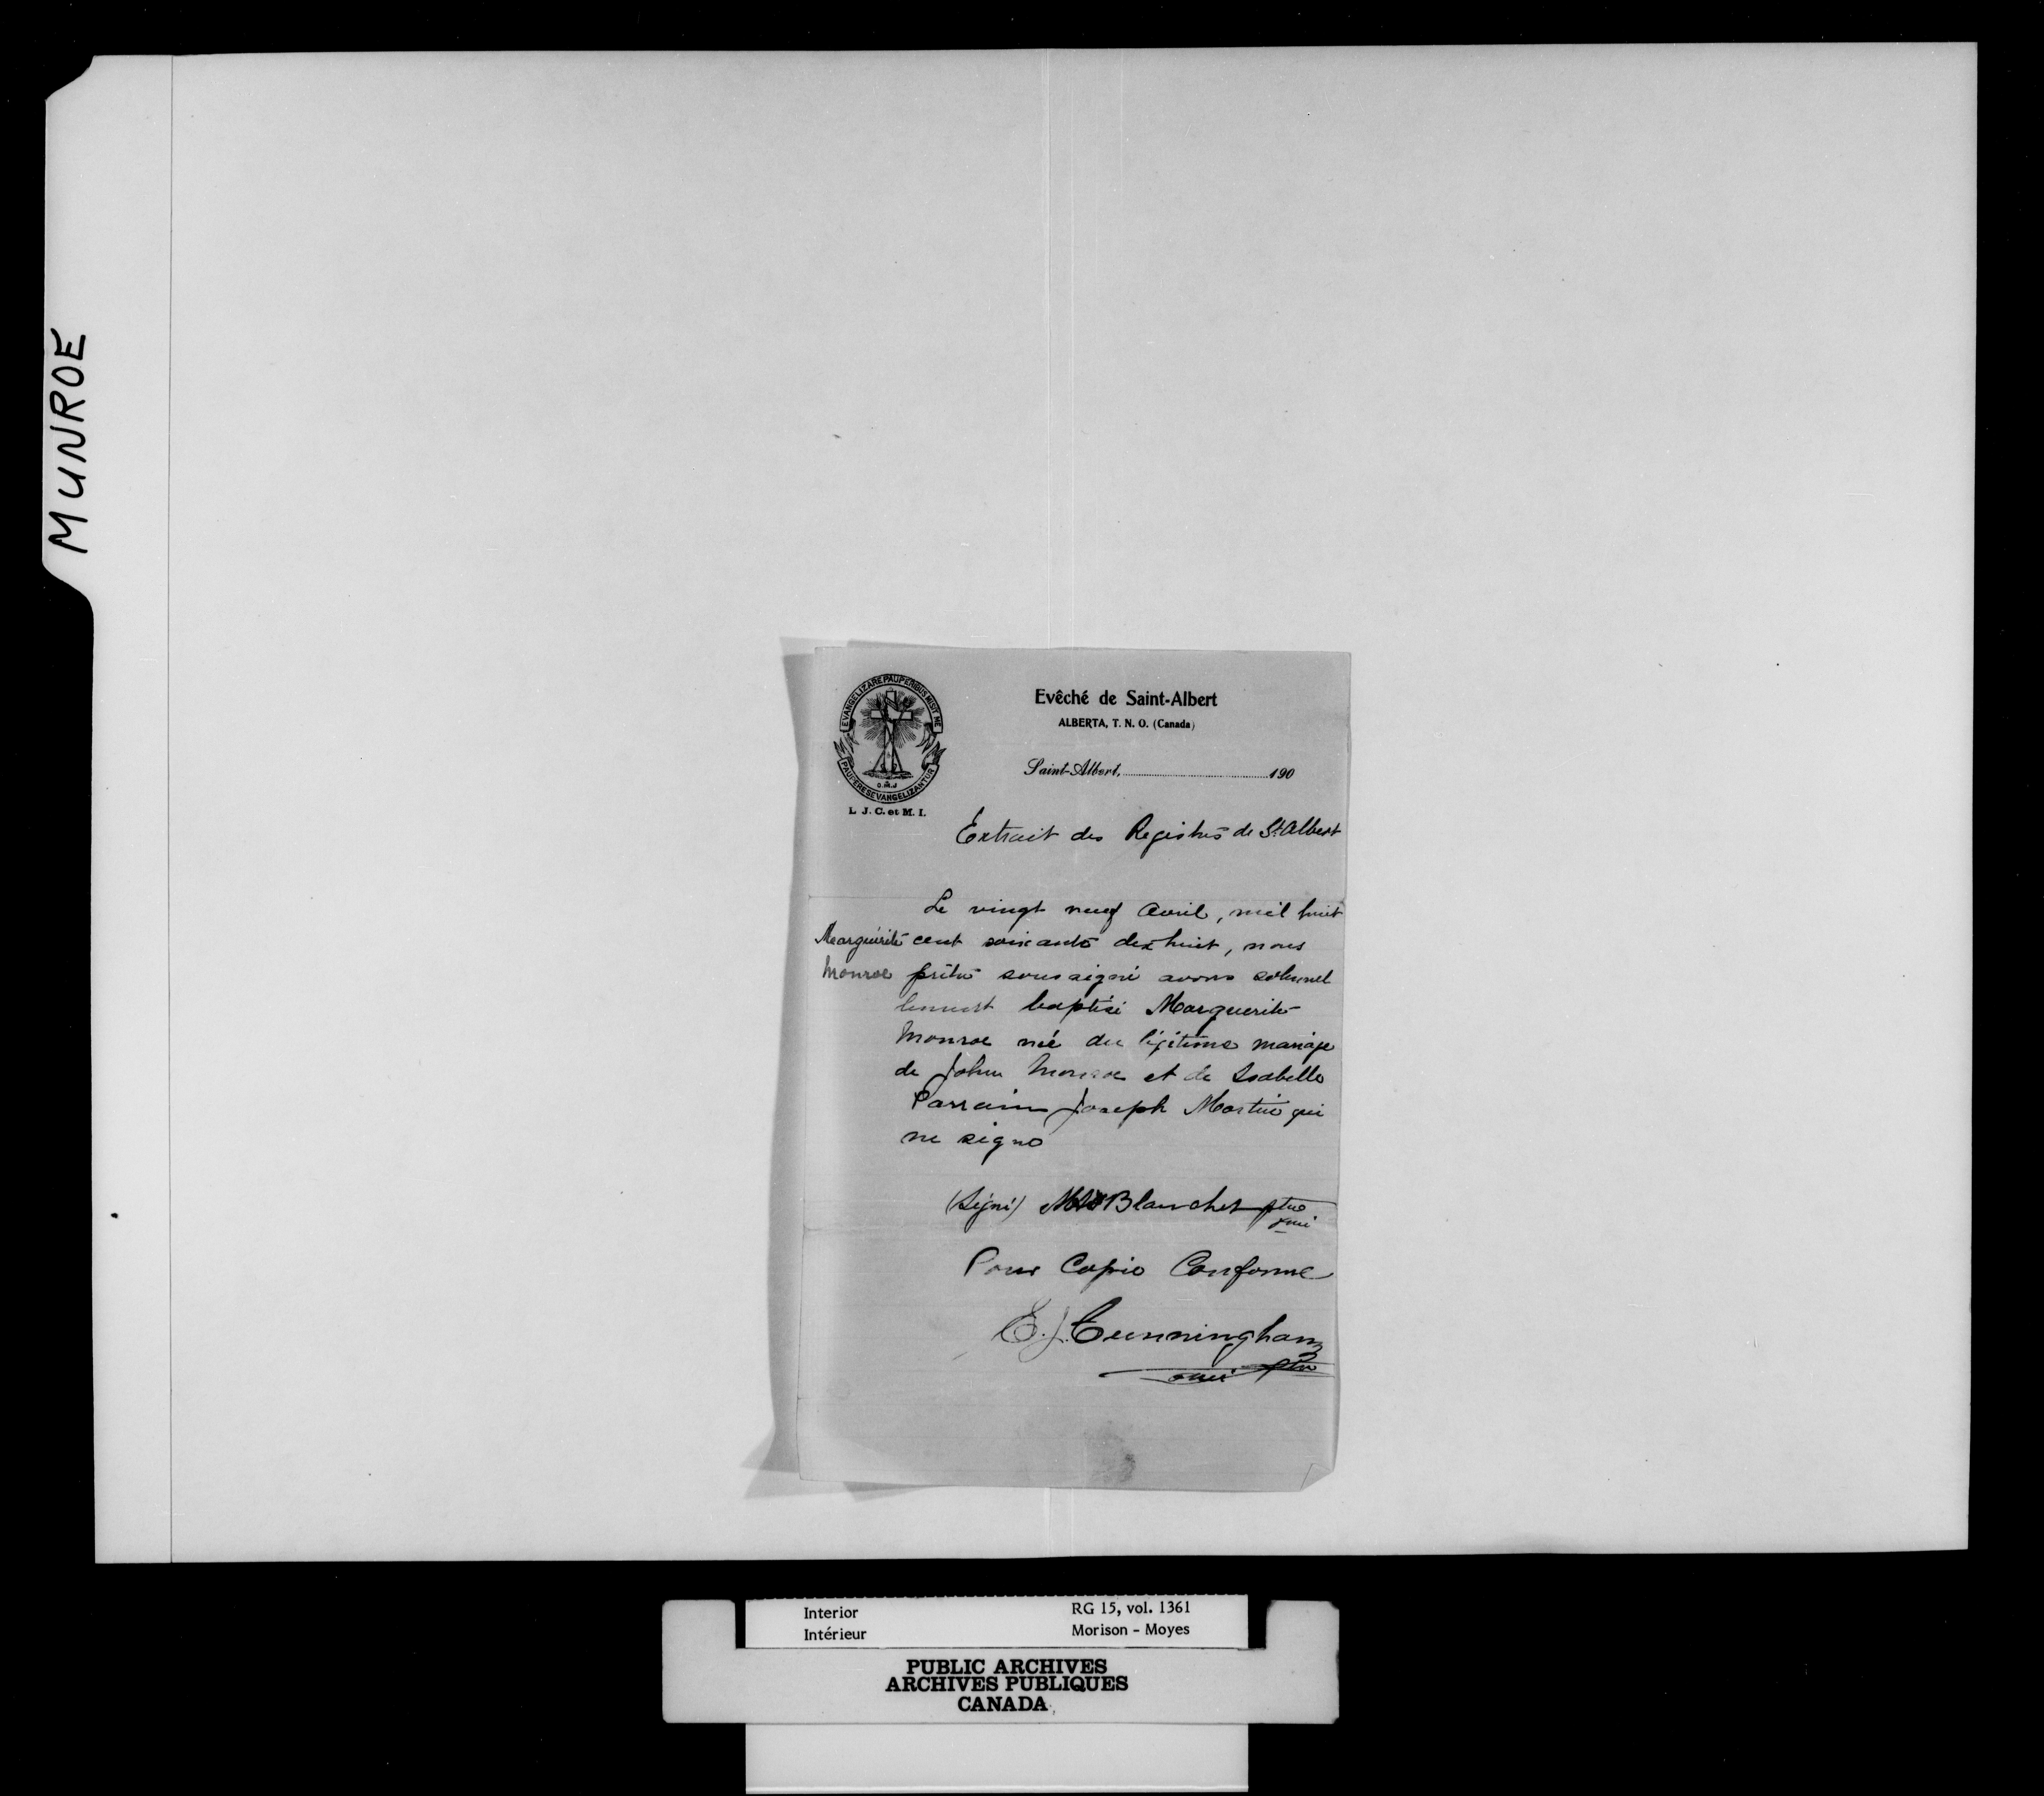 MUNROE
EVANGELIZARE PAUPERIBUS MISIT ME
PAUPERES EVANGELIZANTUR
O.M.J
L. J. C. et M. I.
Evêché de Saint-Albert
ALBERTA, T. N. O. (Canada)
Saint-Albert, 190
Extrait des Registres de St Albert
Marguérite
Monroe
Le vingt neuf Avril, mil huit
cent soixante dix huit, nous
prêtre soussigné avons solennel
lement baptisé Marguerite
Monroe née du légitime mariage
de John Monroe et de Isabelle
Parrain Joseph Martin qui
ne signe
(Signé) Blanchet ptre
omi
Pour Copie Conforme
E. J. Cunningham
omi ptre
Interior
Intérieur
RG 15, vol. 1361
Morison - Moyes
PUBLIC ARCHIVES
ARCHIVES PUBLIQUES
CANADA